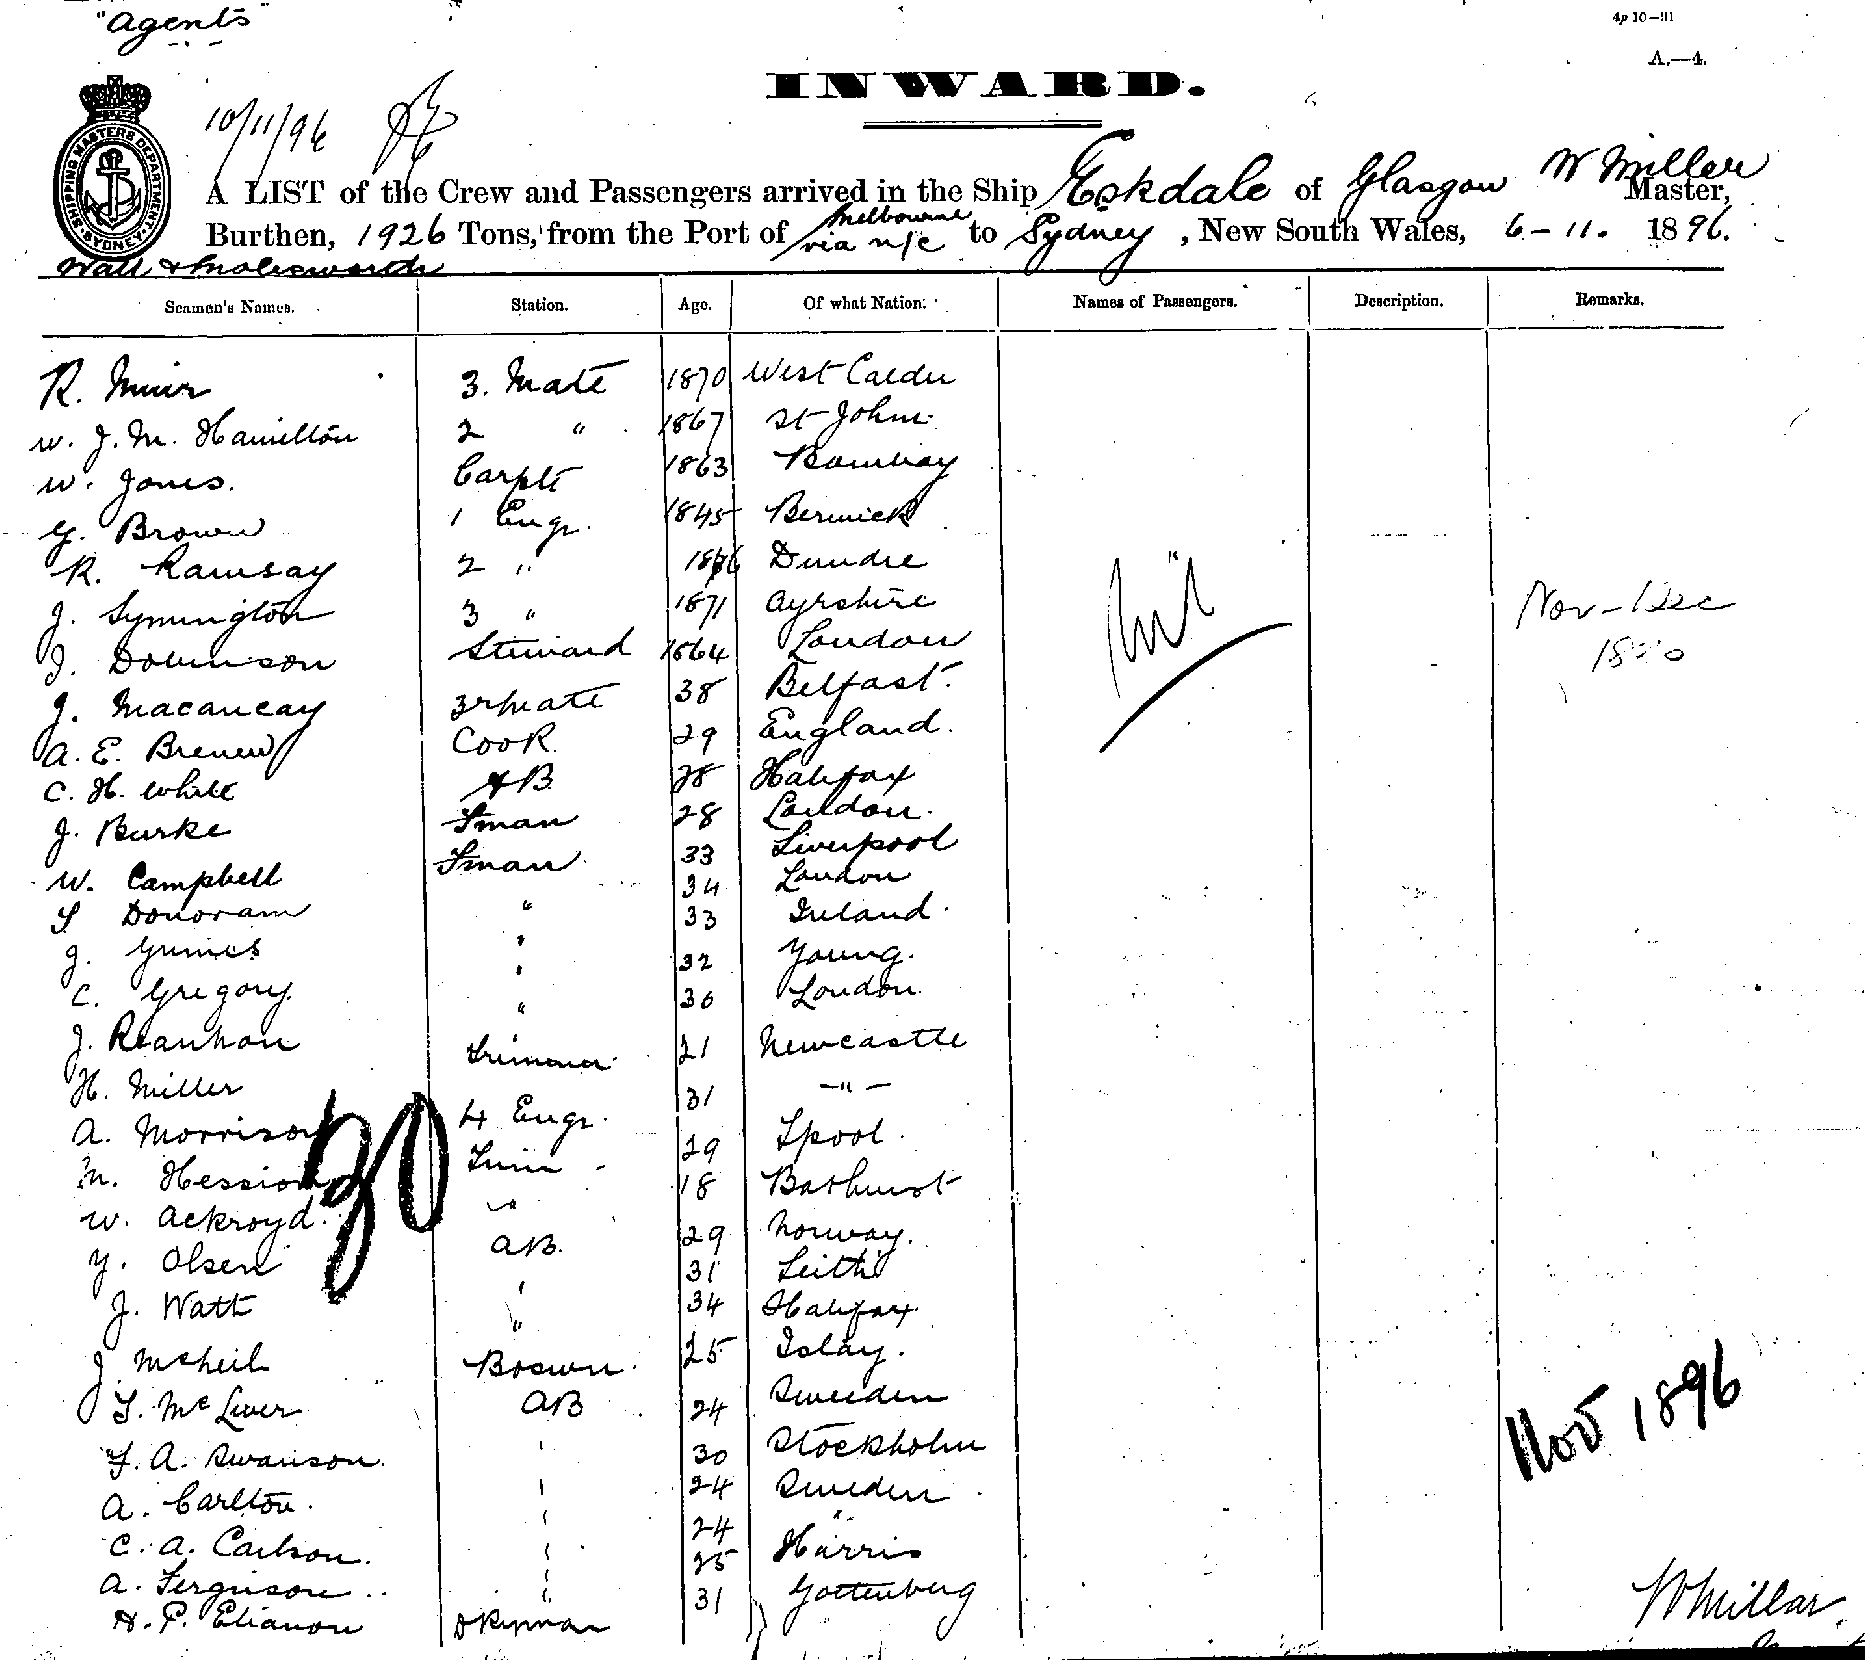 "Agents"
4p 10-91
A.—4.
INWARD.
10/11/96
SHIPPING MASTERS DEPARTMENT SYDNEY
A LIST of the Crew and Passengers arrived in the Ship Eskdale of Glasgow W Millar Master,
Burthen, 1926 Tons, from the Port of Melbourne via n/c to Sydney, New South Wales, 6-11. 1896.
Watt & Molesworth
Seamen's Names. Station. Age. Of what Nation. Names of Passengers. Description. Remarks.
R. Muir 3. Mate 1870 West Calder
W. J. M. Hamilton 2 " 1867 St John
W. Jones. Carptr 1863 Bombay
G. Brown 1 Engr. 1845 Berwick
R. Ramsay 2 " Dundee
J. Symington 3 " 1871 Ayrshire
J. Steward 1864 London
J. Macaulay 3r Mate 38 Belfast.
A. E. Cook 29 England.
C. H. White AB 28 Halifax
J. Burke Fman 28 London.
W. Campbell Fman 33 Liverpool
Donovan " 34 London
J. " 33 Ireland.
C. Gregory " 32 Young.
J. " 30 London.
H. Miller Trimmer 21 Newcastle
A. Morrison 4 Engr. 31 —"—
M. Hession Trim 29 Lpool.
W. Ackroyd. " 18 Bathurst
Y. Olsen AB. 29 Norway.
J. Watt " 31 Leith
J. McNeil " 34 Halifax
Boswn. 25 Islay.
F. A. Swanson. AB 24 Sweeden
A. Carlton. 30 Stockholm
C. A. Carlson. 24 Sweden
A. Ferguson 24 "
25 Harris
H. P. 31 Gottenberg
Nil
Nov-Dec
30
Nov 1896
W Millar